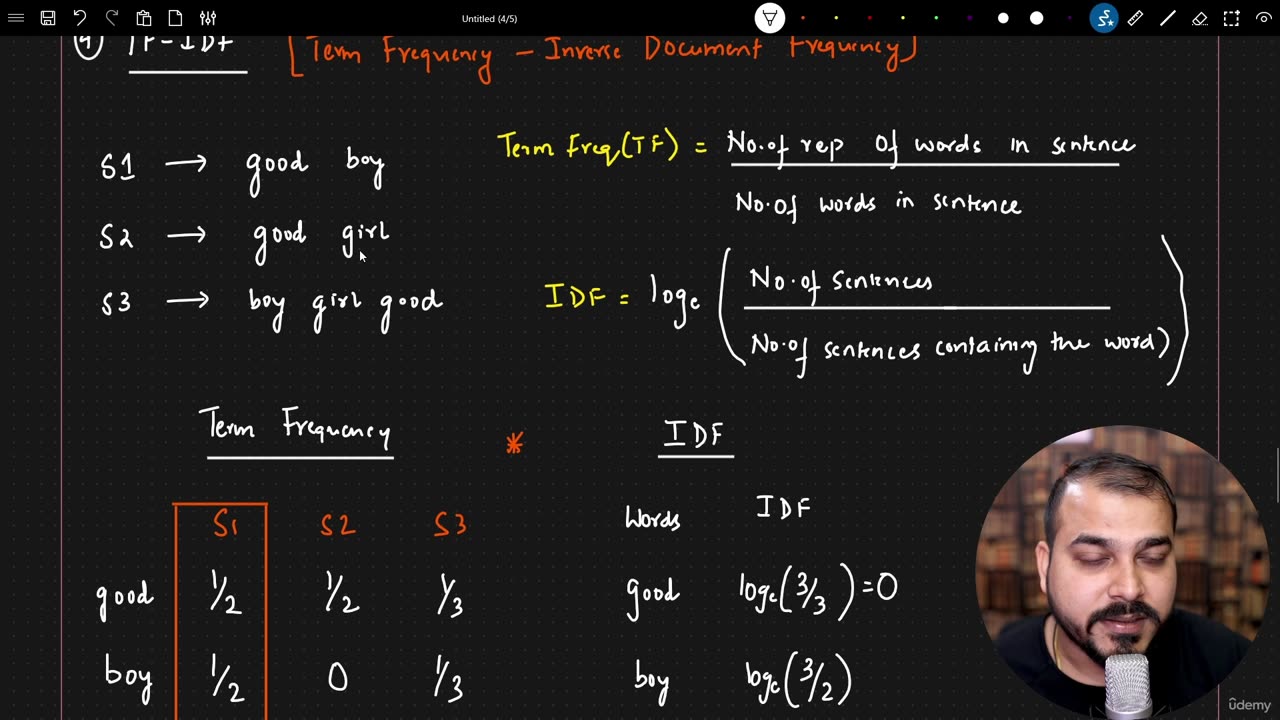 Untitled (4/5)
④ TF-IDF [Term Frequency - Inverse Document Frequency]
S1 → good boy
S2 → good girl
S3 → boy girl good
Term Freq(TF) = No. of rep Of words in sentence
No. of words in sentence
IDF = loge ( No. of Sentences
No. of sentences containing the word) )
Term Frequency * IDF
S1 S2 S3
Words IDF
good 1/2 1/2 1/3
good loge(3/3) = 0
boy 1/2 0 1/3
boy loge(3/2)
ûdemy